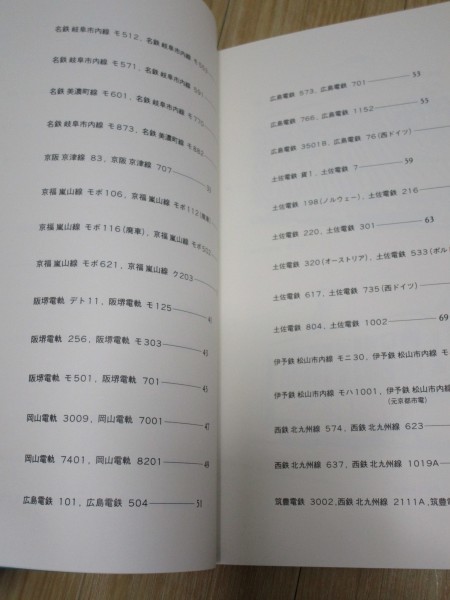 名鉄 岐阜市内線 モ512, 名鉄 岐阜市内線
名鉄 岐阜市内線 モ571, 名鉄 岐阜市内線 モ591
名鉄 美濃町線 モ601, 名鉄 岐阜市内線 モ775
名鉄 岐阜市内線 モ873, 名鉄 美濃町線
京阪 京津線 83, 京阪 京津線 707
京福 嵐山線 モボ106, 京福 嵐山線 モボ112(廃車)
京福 嵐山線 モボ116(廃車), 京福 嵐山線 モボ302
京福 嵐山線 モボ621, 京福 嵐山線 ク203
阪堺電軌 デト11, 阪堺電軌 モ125
阪堺電軌 256, 阪堺電軌 モ303 43
阪堺電軌 モ501, 阪堺電軌 701 45
岡山電軌 3009, 岡山電軌 7001 47
岡山電軌 7401, 岡山電軌 8201 49
広島電鉄 101, 広島電鉄 504 51
広島電鉄 573, 広島電鉄 701 53
広島電鉄 766, 広島電鉄 1152 55
広島電鉄 3501B, 広島電鉄 76(西ドイツ)
土佐電鉄 貨1, 土佐電鉄 7 59
土佐電鉄 198(ノルウェー), 土佐電鉄 216
土佐電鉄 220, 土佐電鉄 301 63
土佐電鉄 320(オーストリア), 土佐電鉄 533(ポル
土佐電鉄 617, 土佐電鉄 735(西ドイツ)
土佐電鉄 804, 土佐電鉄 1002 69
伊予鉄 松山市内線 モニ30, 伊予鉄 松山市内線 モ
伊予鉄 松山市内線 モハ1001, 伊予鉄 松山市内線
(元京都市電)
西鉄 北九州線 574, 西鉄 北九州線 623
西鉄 北九州線 637, 西鉄 北九州線 1019A
筑豊電鉄 3002, 西鉄 北九州線 2111A, 筑豊電